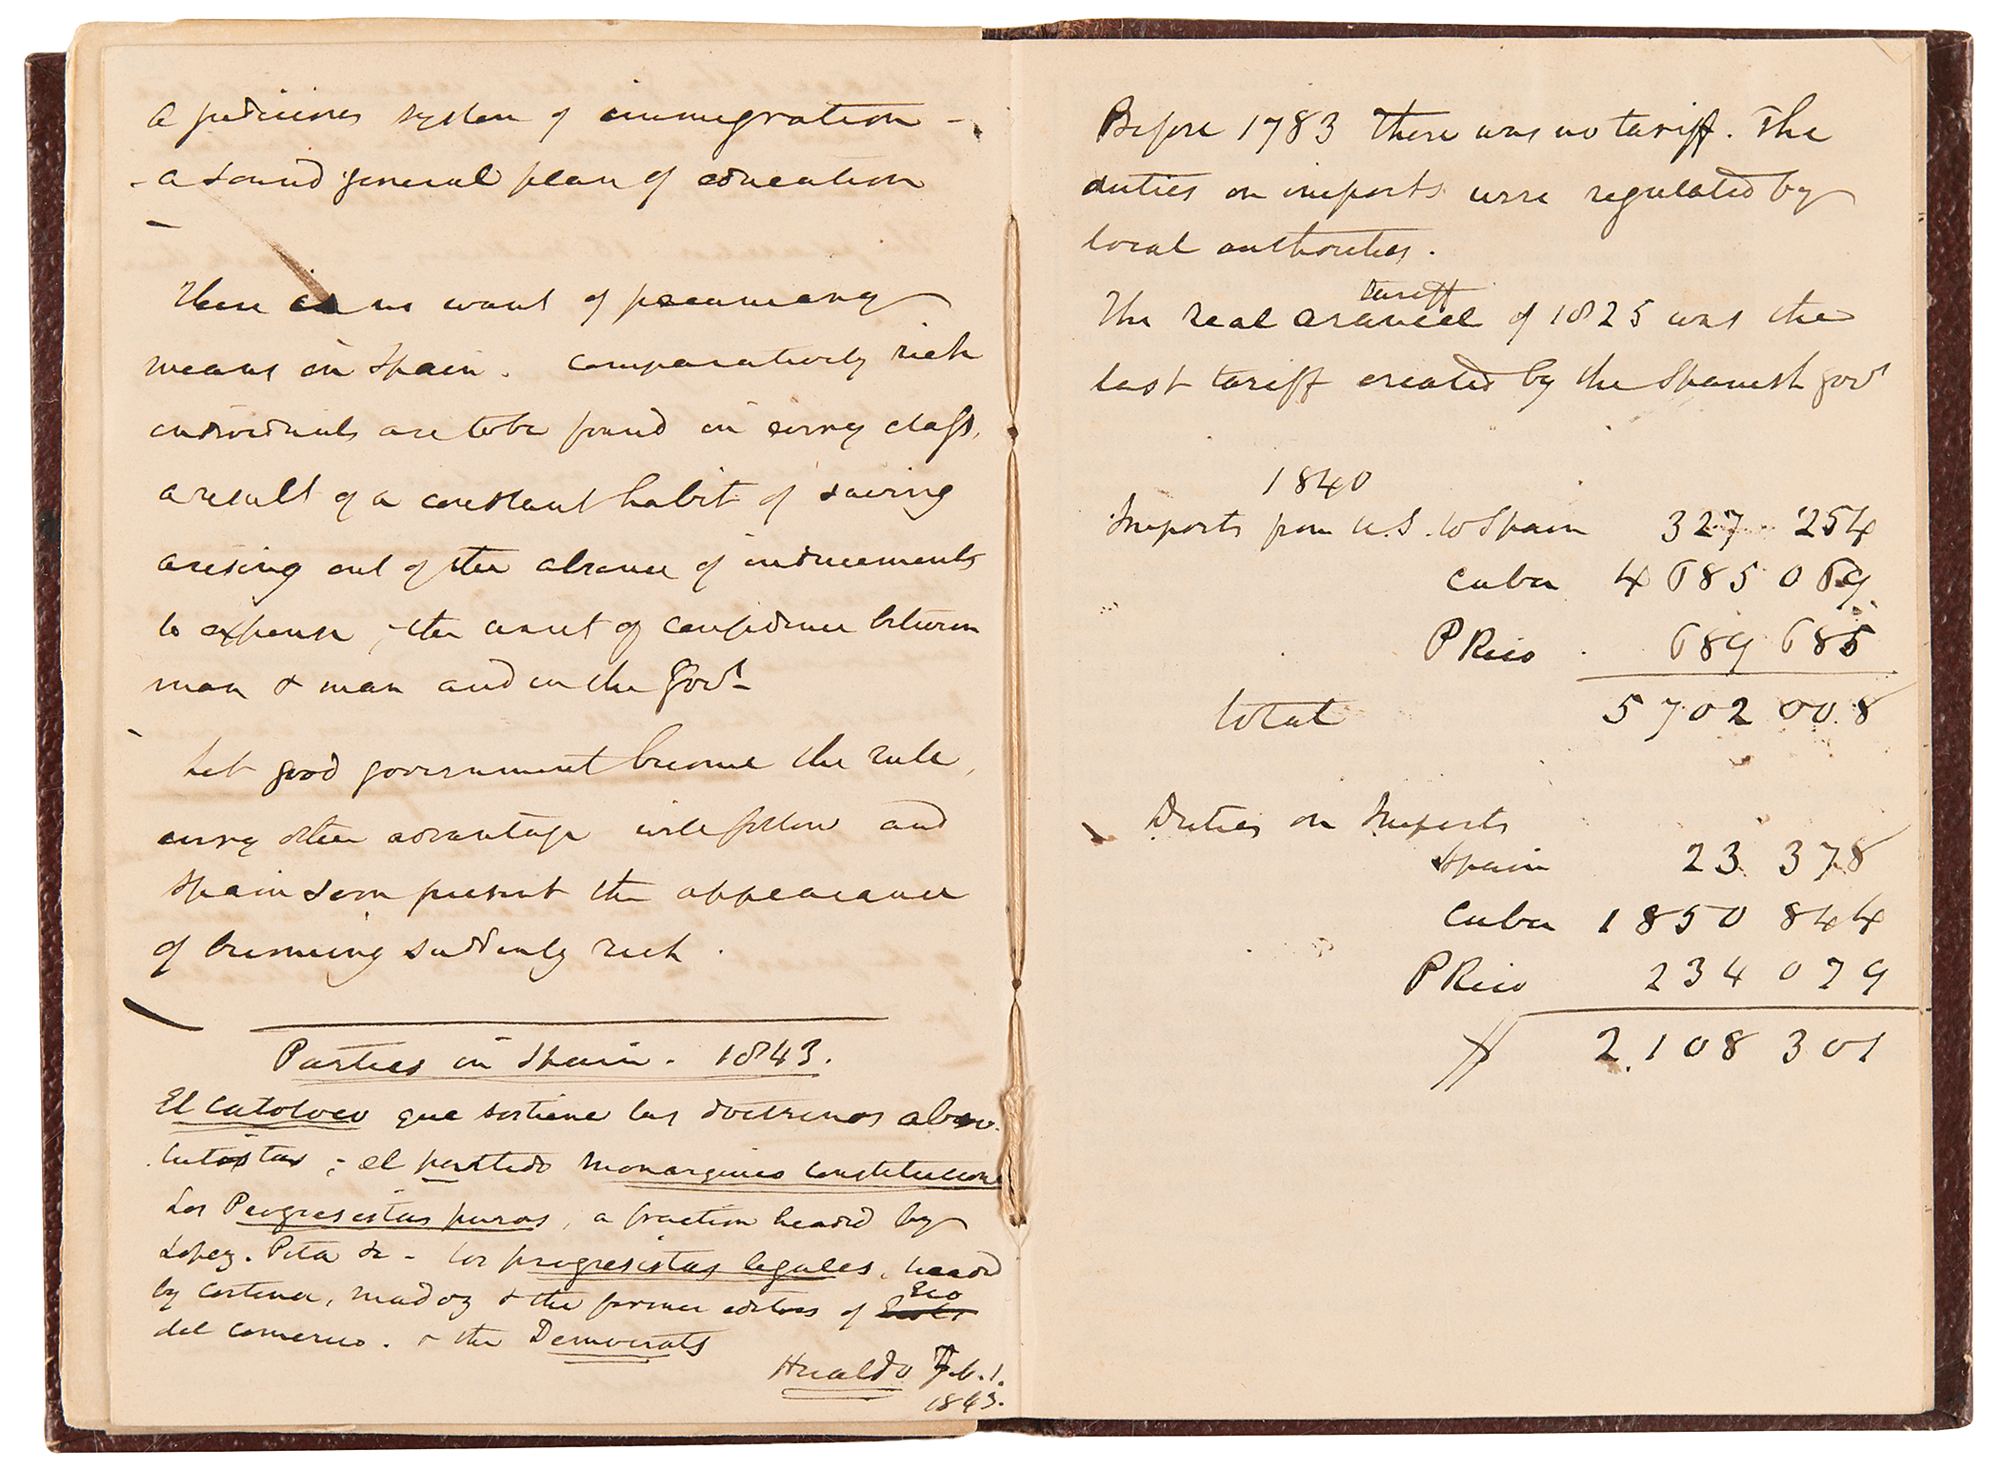 a judicious system of immigration -
- a sound general plan of education
There is no want of pecuniary
means in Spain. Comparatively rich
individuals are to be found in every class,
a result of a constant habit of saving
arising out of the absence of inducements
to expense, the want of confidence between
man & man and in the Govt.
Let good government become the rule,
every other advantage will follow and
Spain soon present the appearance
of becoming suddenly rich.
Parties in Spain. 1843.
El Catoloco que sostiene las doctrinas abso-
lutistas; el partido Monarquico Constitucional
Los Progresistas puros, a fraction headed by
Lopez. Pita &c - los progresistas legales, headed
by Cortina, Madoz & the former editors of Eco
del Comercio. & the Democrats
Heraldo Feb. 1.
1843.
Before 1783 there was no tariff. The
duties on imports were regulated by
local authorities.
tariff
The real arancel of 1825 was the
last tariff created by the Spanish govt
1840
Imports from U.S. to Spain 327 254
Cuba 4 685 069
P Rico 689 685
Total 5 702 008
Duties on Imports
Spain 23 378
Cuba 1 850 844
P Rico 234 079
2.108 301